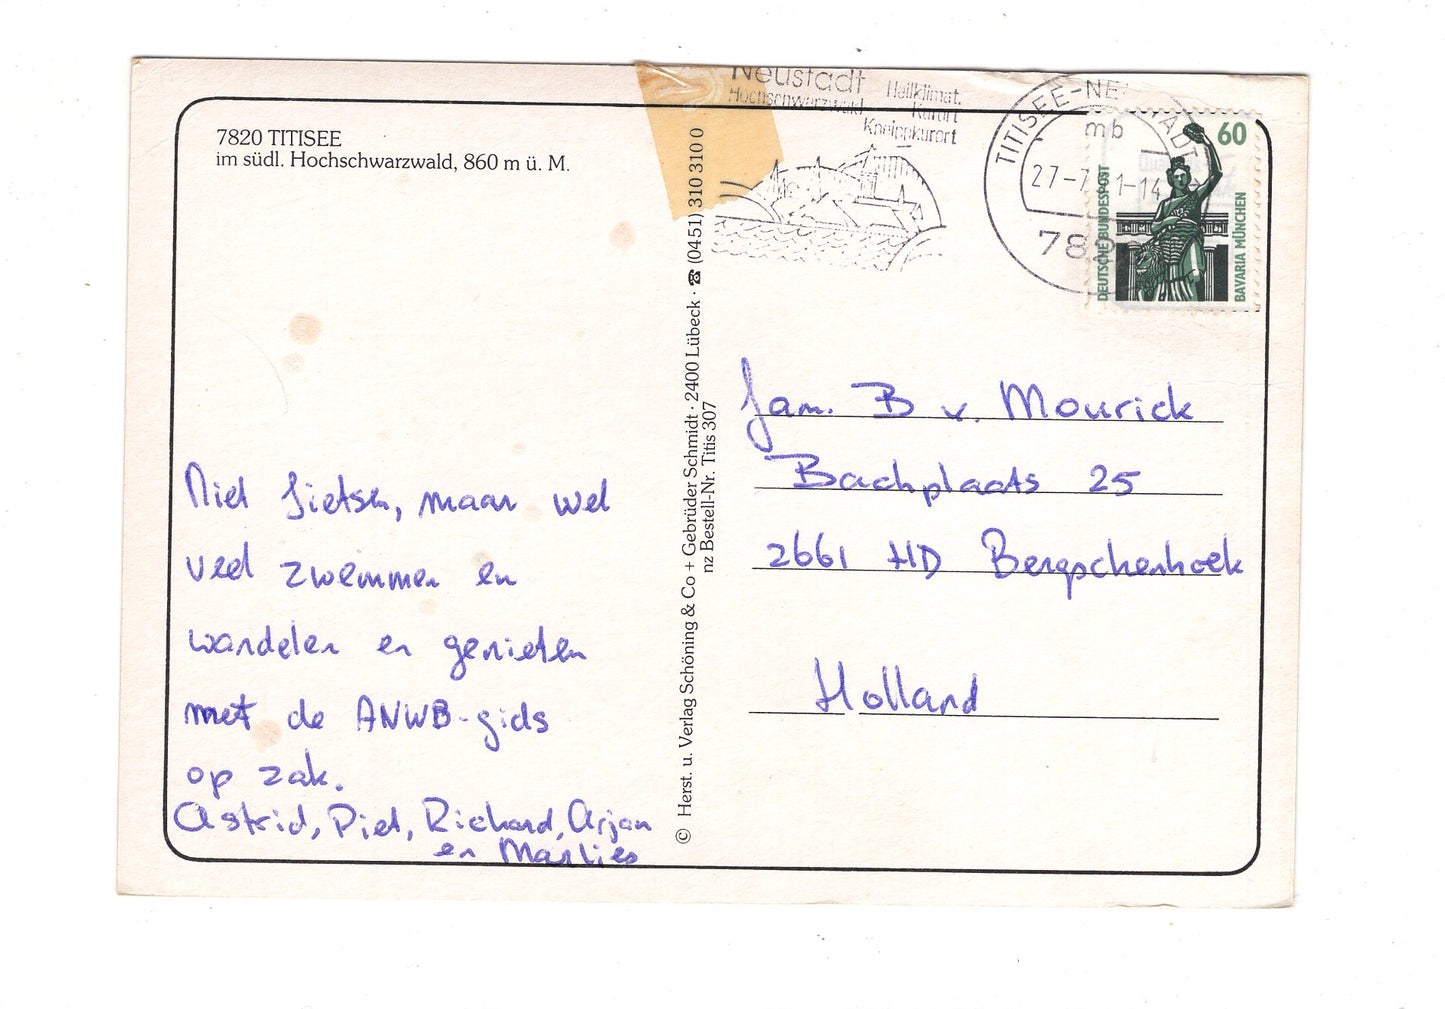 7820 TITISEE
im südl. Hochschwarzwald, 860 m ü. M.
Niet fietsen, maar wel
veel zwemmen en
wandelen en genieten
met de ANWB-gids
op zak.
Astrid, Piet, Richard, Arjan
en Marlies
© Herst. u. Verlag Schöning & Co + Gebrüder Schmidt · 2400 Lübeck · ☎ (0451) 310 310 0
nz Bestell-Nr. Titis 307
Neustadt
Hochschwarzwald
Heilklimat.
Kurort
Kneippkurort
TITISEE-NE STADT
mb
27-7 1-14
782
60
DEUTSCHE BUNDESPOST
BAVARIA MÜNCHEN
Fam. B v. Mourick
Bachplaats 25
2661 HD Bergschenhoek
Holland